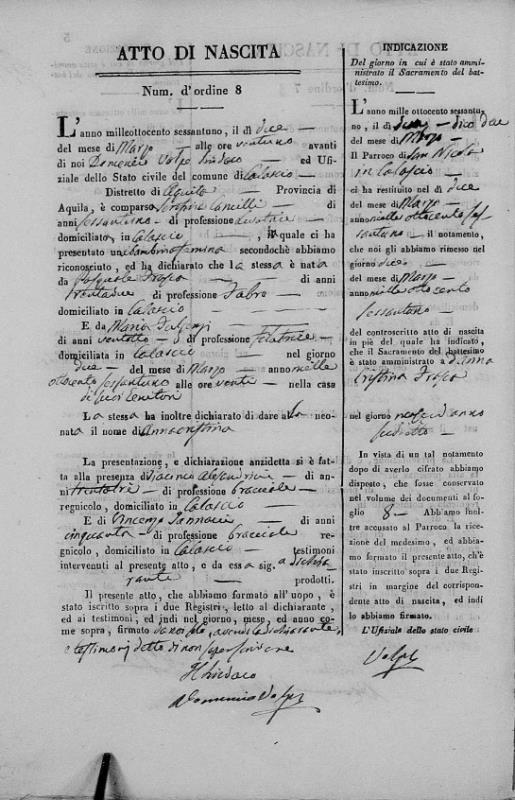 ATTO DI NASCITA
Num. d'ordine 8
L'anno milleottocento sessantuno, il dì due
del mese di Marzo alle ore ventuno avanti
di noi Domenico Volpe Sindaco ed Ufi-
ziale dello Stato civile del comune di Calascio
Distretto di Aquila Provincia di
Aquila, è comparso di
anni sessantuno di professione
domiciliato in Calascio , quale ci ha
presentato una bambina femina secondochè abbiamo
riconosciuto, ed ha dichiarato che la stessa è nata
da Pasquale Frasca di anni
trentadue di professione Fabro
domiciliato in Calascio
E da Maria
di anni ventotto di professione Filatrice
domiciliata in Calascio nel giorno
due del mese di Marzo anno mille
ottocento sessantuno alle ore venti nella casa
di suoi Genitori
La stessa ha inoltre dichiarato di dare alla neo-
nata il nome di Annacristina
La presentazione, e dichiarazione anzidetta si è fat-
ta alla presenza di Giacinto di an-
ni di professione bracciale
regnicolo, domiciliato in Calascio
E di Vincenzo di anni
cinquanta di professione bracciale re-
gnicolo, domiciliato in Calascio testimoni
intervenuti al presente atto, e da essa sig.a Dichia
rante prodotti.
Il presente atto, che abbiamo formato all'uopo, è
stato iscritto sopra i due Registri, letto al dichiarante,
ed ai testimoni, ed indi nel giorno, mese, ed anno co-
me sopra, firmato da noi solo, avendo la Dichiarante,
e testimonj detto di non saper scrivere
Il Sindaco
Domenico Volpe
INDICAZIONE
Del giorno in cui è stato ammi-
nistrato il Sacramento del bat-
tesimo.
L'anno mille ottocento sessantu-
no, il dì dico due
del mese di Marzo
Il Parroco di San Nicola
in Calascio
ci ha restituito nel dì due
del mese di Marzo
anno mille ottocento ses
santuno il notamento,
che noi gli abbiamo rimesso nel
giorno due
del mese di Marzo
anno mille ottocento
sessantuno
del controscritto atto di nascita
in piè del quale ha indicato,
che il Sacramento del battesimo
è stato amministrato a Anna
Cristina Frasca
nel giorno anno
sudetto
In vista di un tal notamento
dopo di averlo cifrato abbiamo
disposto, che fosse conservato
nel volume dei documenti al fo-
glio 8 Abbiamo inol-
tre accusato al Parroco la rice-
zione del medesimo, ed abbia-
mo formato il presente atto, ch'è
stato inscritto sopra i due Regi-
stri in margine del corrispon-
dente atto di nascita, ed indi
lo abbiamo firmato.
L'Ufiziale dello stato civile
Volpe